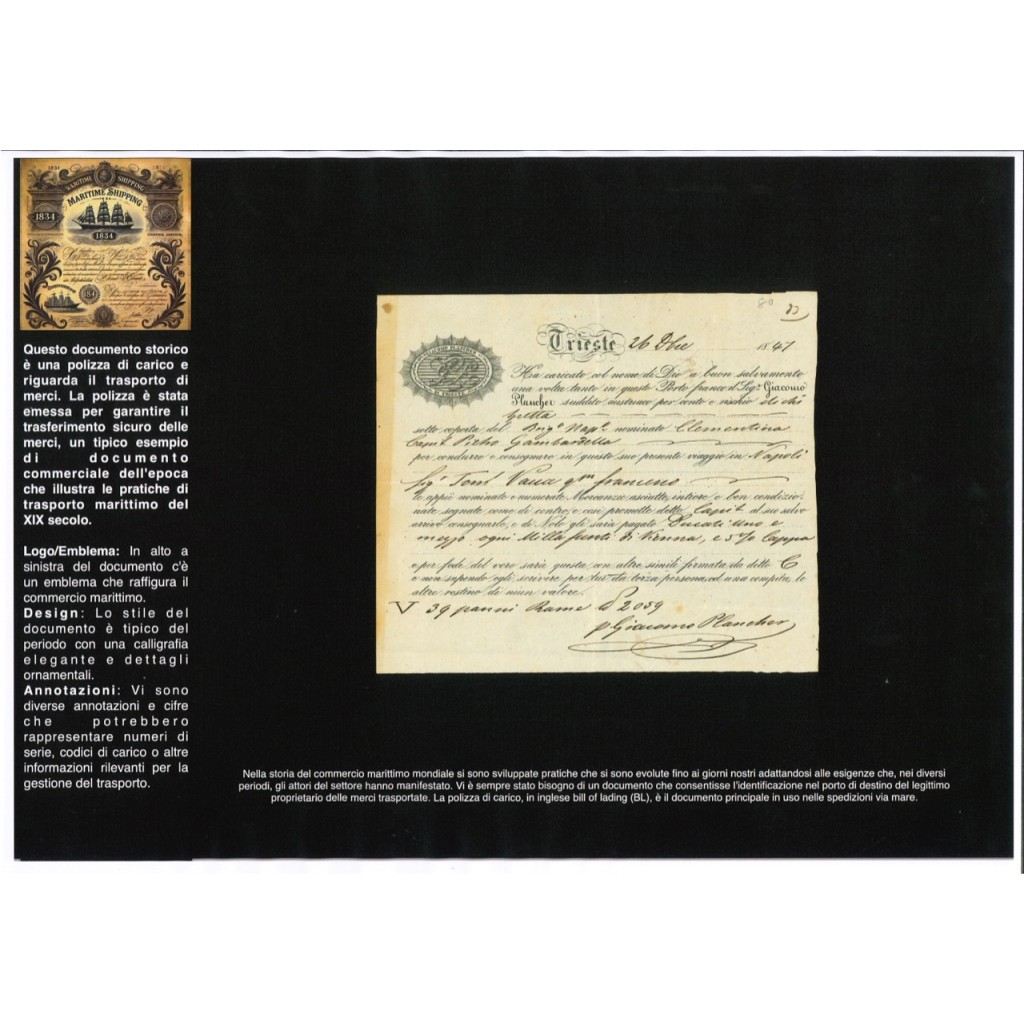 MARITIME SHIPPING
MARITIME SHIPPING
1834
1834
Questo documento storico
è una polizza di carico e
riguarda il trasporto di
merci. La polizza è stata
emessa per garantire il
trasferimento sicuro delle
merci, un tipico esempio
di documento
commerciale dell'epoca
che illustra le pratiche di
trasporto marittimo del
XIX secolo.
Logo/Emblema: In alto a
sinistra del documento c'è
un emblema che raffigura il
commercio marittimo.
Design: Lo stile del
documento è tipico del
periodo con una calligrafia
elegante e dettagli
ornamentali.
Annotazioni: Vi sono
diverse annotazioni e cifre
che potrebbero
rappresentare numeri di
serie, codici di carico o altre
informazioni rilevanti per la
gestione del trasporto.
80
GIACOMO PLANCHER
DI TRIESTE
Trieste 26 Dbre 1847
Ha caricato col nome di Dio a buon salvamento
una volta tanto in questo Porto franco il Sigr. Giacomo
Plancher suddito austriaco per conto e rischio di chi
spetta
sotto coperta del Brigo. Napo. nominato Clementina
Capno. Pietro Gambardella
per condurre e consegnare in questo suo presente viaggio in Napoli
Sigr. Tom. Vacca qm franceso
le appiè nominate e numerate Mercanzie asciutte, intiere e ben condizio-
nate, segnate come di contro, e così promette detto Capit. al suo salvo
arrivo consegnarle, e di Nolo gli sarà pagato Ducati uno e
mezzo ogni Mille funti di Vienna, e 5 % Cappa
e per fede del vero sarà questa con altre simili firmata da detto C
e non sapendo egli scrivere per lui da terza persona, ed una compita, le
altre restino di niun valore.
V 39 panni Rame 2059
p Giacomo Plancher
Nella storia del commercio marittimo mondiale si sono sviluppate pratiche che si sono evolute fino ai giorni nostri adattandosi alle esigenze che, nei diversi
periodi, gli attori del settore hanno manifestato. Vi è sempre stato bisogno di un documento che consentisse l'identificazione nel porto di destino del legittimo
proprietario delle merci trasportate. La polizza di carico, in inglese bill of lading (BL), è il documento principale in uso nelle spedizioni via mare.